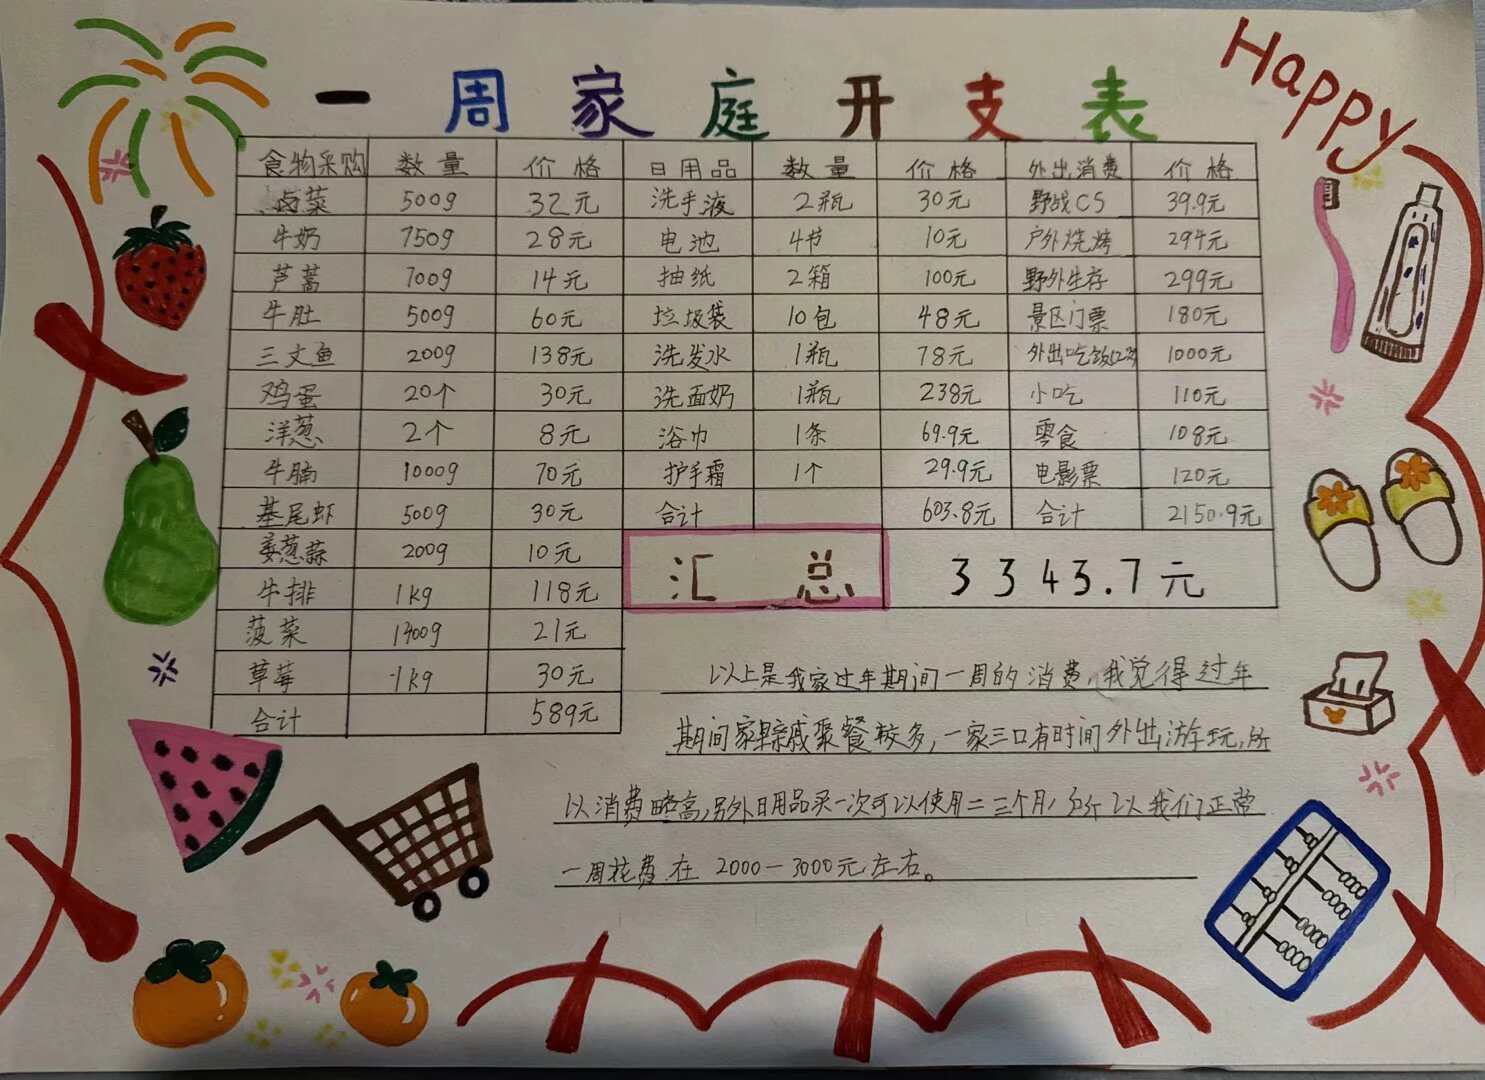 Happy
一周家庭开支表
食物采购 数量 价格 日用品 数量 价格 外出消费 价格
卤菜 500g 32元 洗手液 2瓶 30元 野战CS 39.9元
牛奶 750g 28元 电池 4节 10元 户外烧烤 294元
芦蒿 700g 14元 抽纸 2箱 100元 野外生存 299元
牛肚 500g 60元 垃圾袋 10包 48元 景区门票 180元
三文鱼 200g 138元 洗发水 1瓶 78元 外出吃饭(2次 1000元
鸡蛋 20个 30元 洗面奶 1瓶 238元 小吃 110元
洋葱 2个 8元 浴巾 1条 69.9元 零食 108元
牛腩 1000g 70元 护手霜 1个 29.9元 电影票 120元
基尾虾 500g 30元 合计 603.8元 合计 2150.9元
姜葱蒜 200g 10元 汇总 3343.7元
牛排 1kg 118元
菠菜 1400g 21元
草莓 1kg 30元
合计 589元
以上是我家过年期间一周的消费,我觉得过年
期间家里亲戚聚餐较多,一家三口有时间外出游玩,所
以消费略高,另外日用品买一次可以使用二三个月,所以我们正常
一周花费在2000—3000元左右。